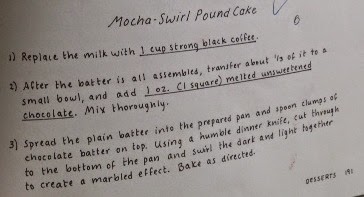 Mocha-Swirl Pound Cake
1) Replace the milk with 1 cup strong black coffee.
2) After the batter is all assembled, transfer about 1/3 of it to a
small bowl, and add 1 oz. (1 square) melted unsweetened
chocolate. Mix thoroughly.
3) Spread the plain batter into the prepared pan and spoon clumps of
chocolate batter on top. Using a humble dinner knife, cut through
to the bottom of the pan and swirl the dark and light together
to create a marbled effect. Bake as directed.
DESSERTS 191